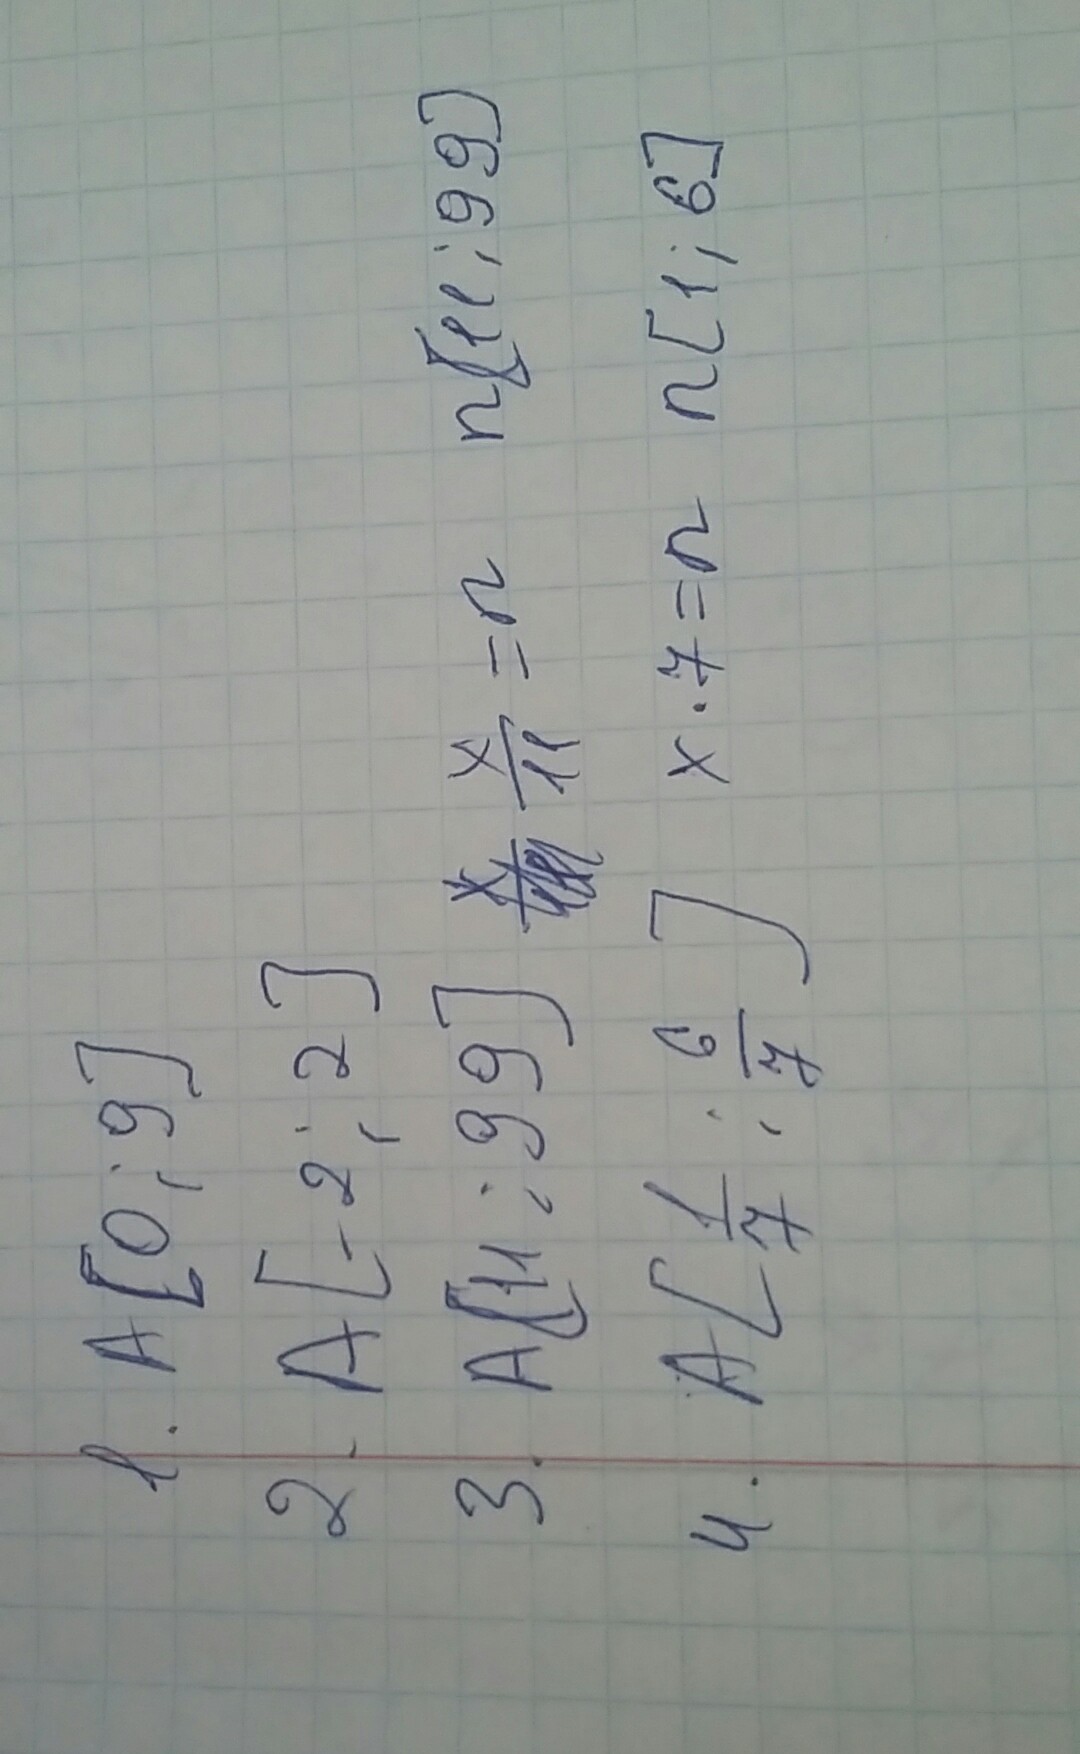 1. A[0;9]
2. A[-2;2]
3. A[11;99] x/11 = n n[11;99]
4. A[1/7;6/7] x·7=n n[1;6]